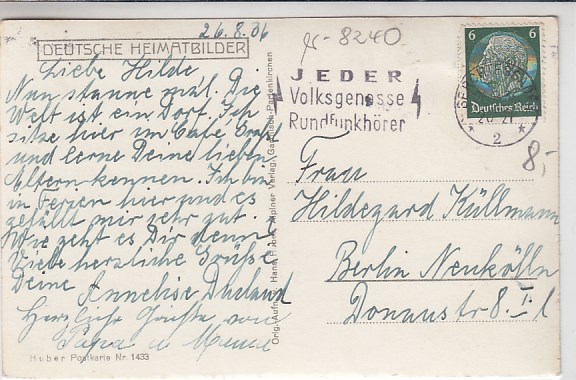 26.8.36
DEUTSCHE HEIMATBILDER
Liebe Hilde
Nun staune mal. Die
Welt ist ein Dorf. Ich
sitze hier im Café
und lerne Deine lieben
Eltern kennen. Ich bin
in Ferien hier und es
gefällt mir sehr gut.
Wie geht es Dir denn
Viele herzliche Grüße
Deine
Annelise
Herzliche Grüße von
Papa u Mama
Huber Postkarte Nr. 1433
Orig.-Aufn. u. Verlag, Garmisch-Partenkirchen
8240
JEDER
Volksgenosse
Rundfunkhörer
6 6
Deutsches Reich
2
8,-
Frau
Hildegard Küllmann
Berlin Neukölln
Donaustr 8. I. l